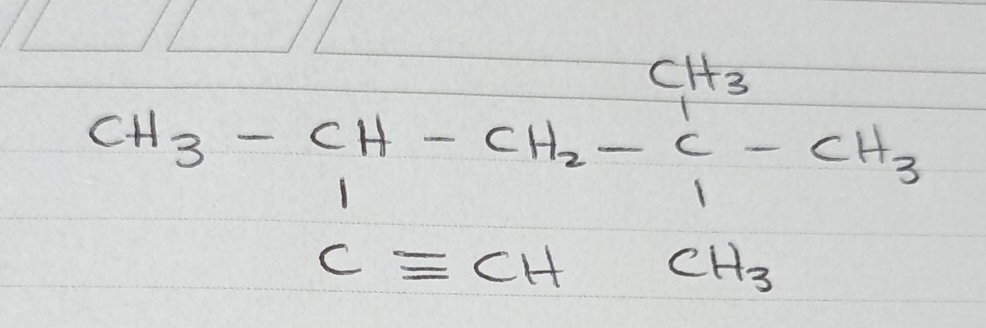 CH₃
CH₃ - CH - CH₂ - C - CH₃
C ≡ CH CH₃